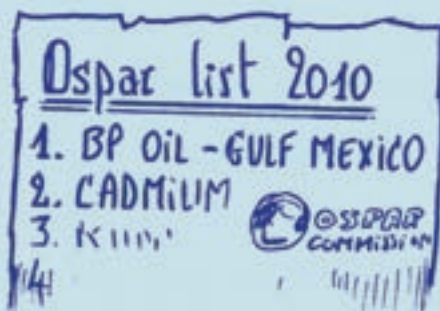 Ospar list 2010
1. BP OiL - GULF MEXiCO
2. CADMiUM
3.
OSPAR
COMMISSION
4.